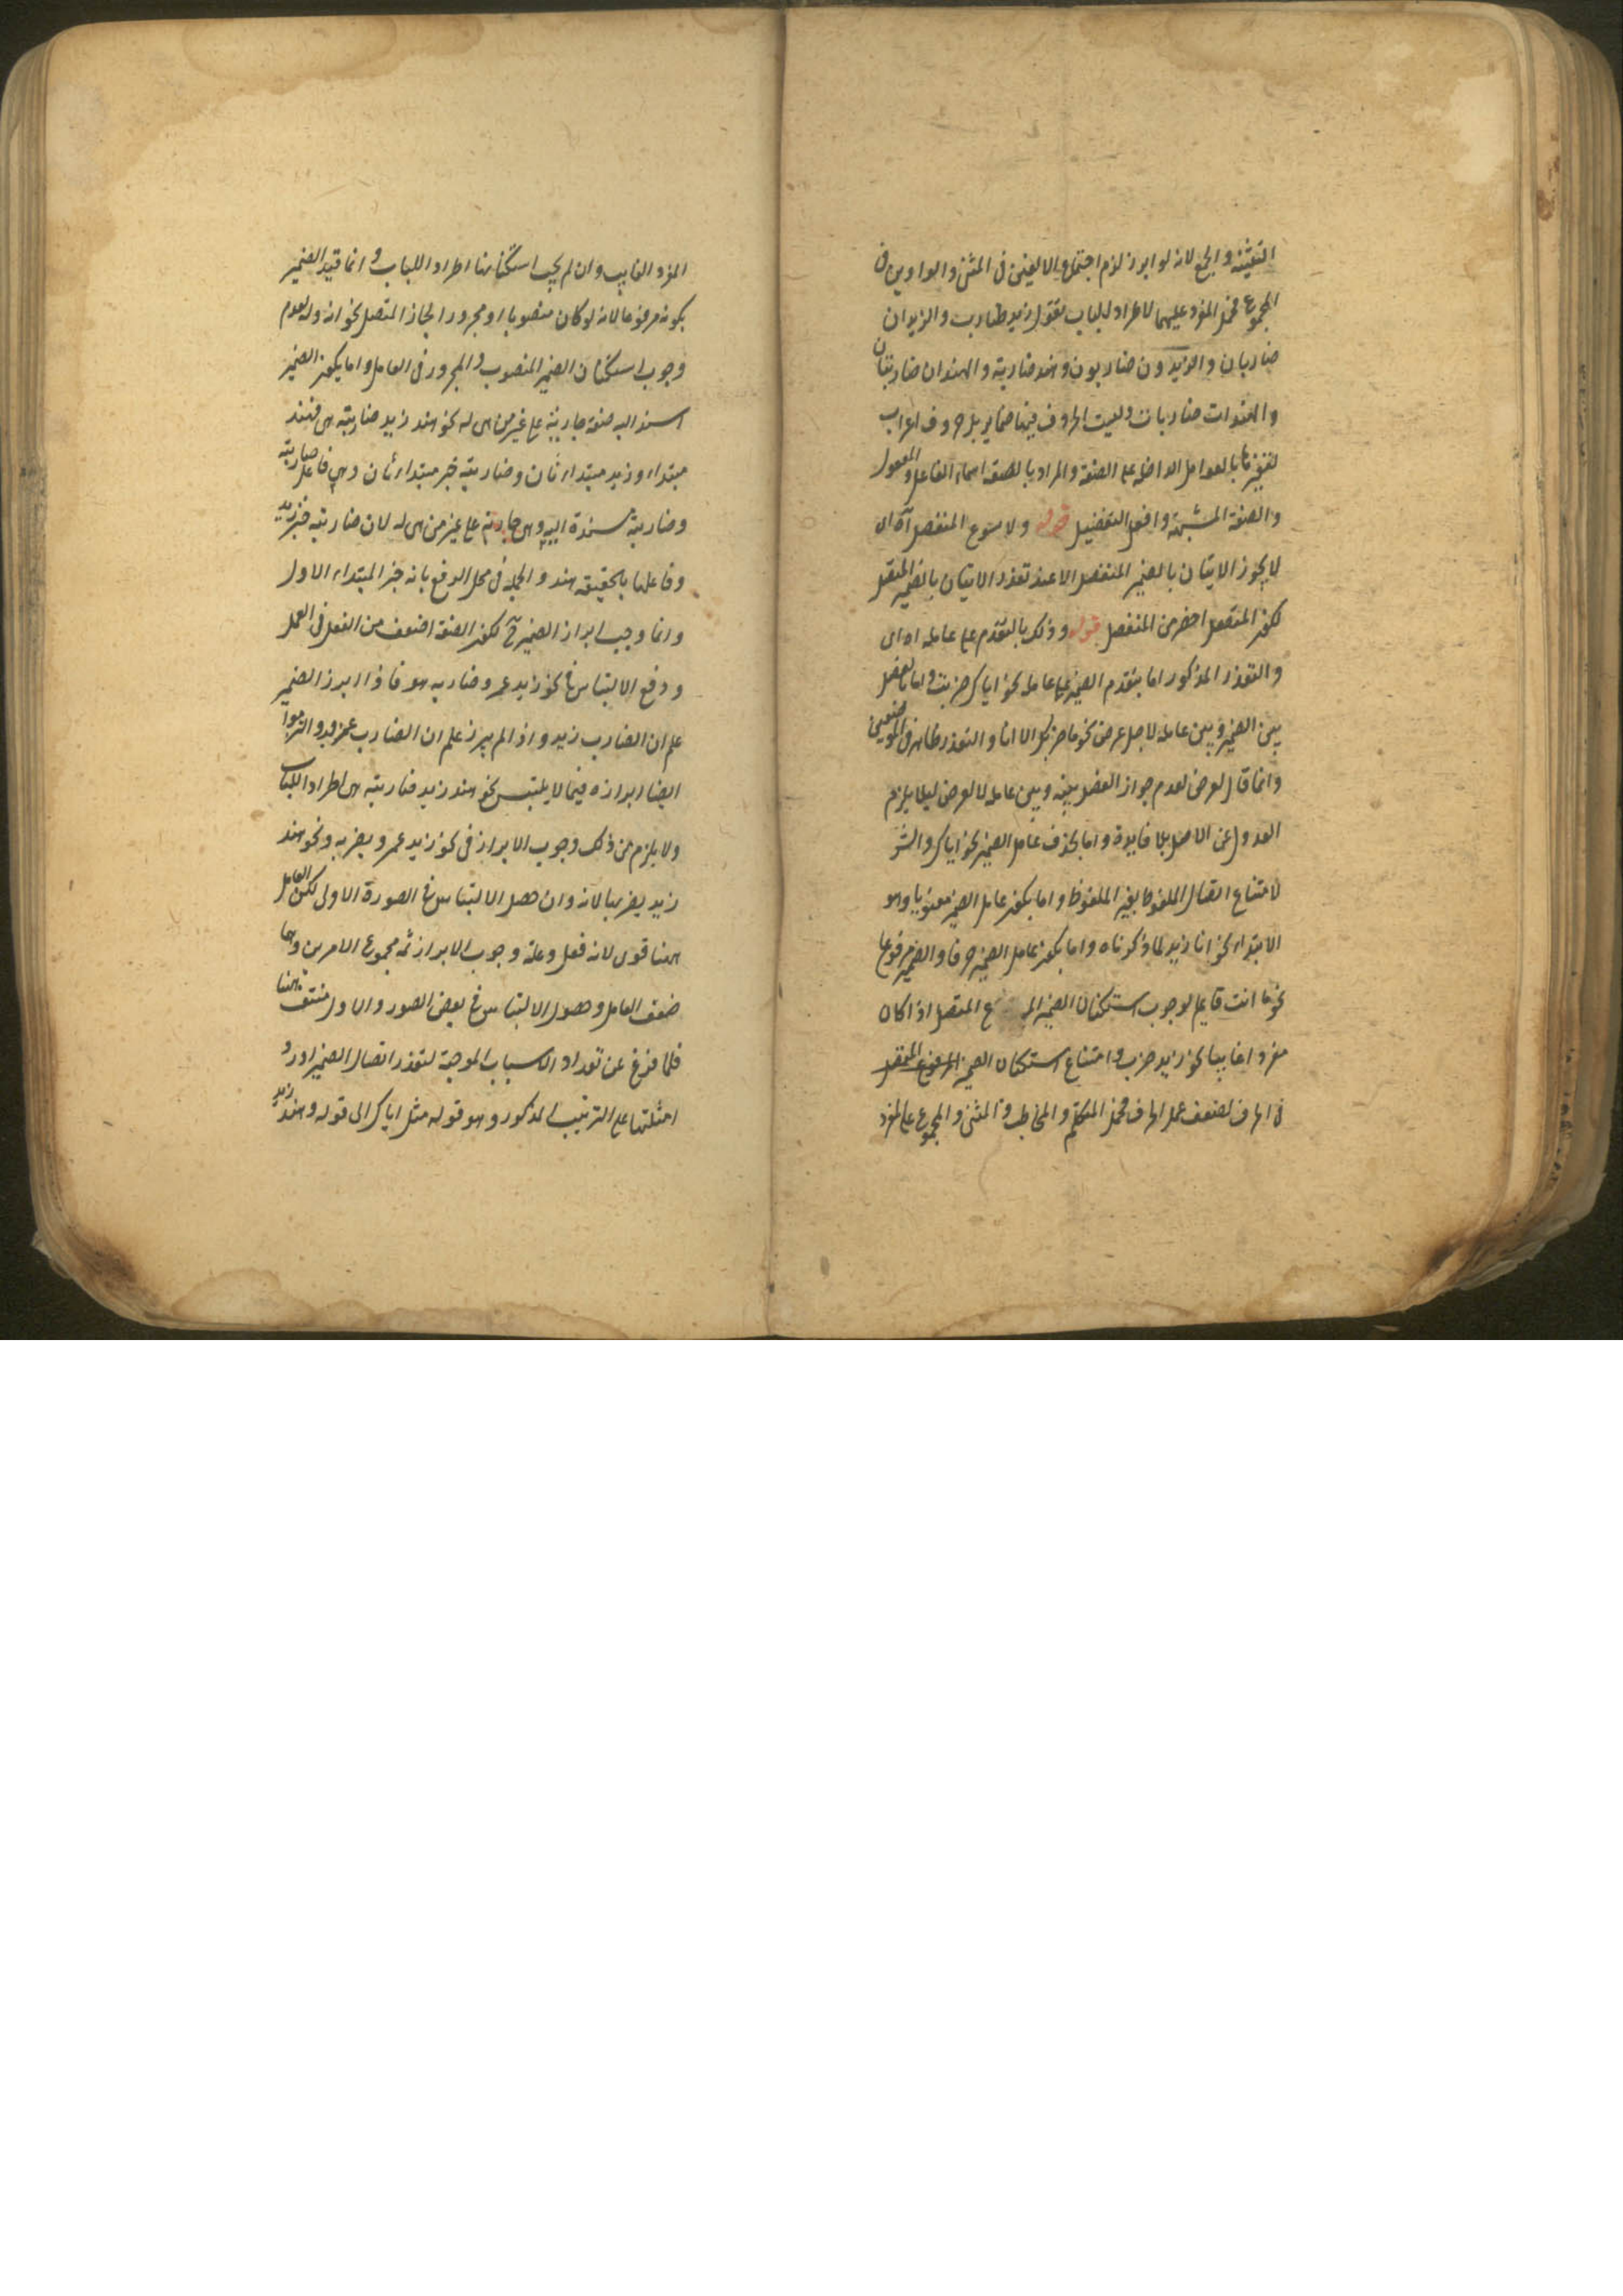 التثنية والجمع لانه لو ابرز لزم اجتماع الالفين فى المثنى والواوين فى
المجموع فحمل المفرد عليهما لاطراد الباب تقول زيد ضارب والزيدان
ضاربان والزيدون ضاربون وهند ضاربة والهندان ضاربتان
والهندات ضاربات وليست الحروف فيها ضماير بل حروف اعراب
لتغيرها بالعوامل الداخلة على الصفة والمراد بالصفة اسماء الفاعل والمفعول
والصفة المشبهة وافعل التفضيل قوله ولا يسوغ المنفصل آه اى
لا يجوز الاتيان بالضمير المنفصل الا عند تعذر الاتيان بالضمير المتصل
لكون المتصل اخصر من المنفصل قوله وذلك بالتقدم على عامله اه اى
والتعذر المذكور اما بتقدم الضمير على عامله نحو اياك ضربت واما بالفصل
بين الضمير وبين عامله لاجل غرض نحو ما ضربك الا انا والتعذر ظاهر فى الموضعين
وانما قال لغرض لعدم جواز الفصل بينه وبين عامله لا لغرض ليلا يلزم
العدول عن الاصل بلا فايدة واما بحذف عامل الضمير نحو اياك والشر
لامتناع اتصال الملفوظ بغير الملفوظ واما بكون عامل الضمير معنويا وهو
الابتداء نحو انا زيد لما ذكرناه واما بكون عامل الضمير حرفا والضمير مرفوعا
نحو ما انت قايم لوجوب استكنان الضمير المرفوع المتصل اذا كان
مفرد اغايبا نحو زيد ضرب وامتناع استكنان الضمير المرفوع المتصل
فى الحرف لضعف عمل الحرف فحمل المتكلم والمخاطب والمثنى والمجموع على المفرد
المفرد الغايب وان لم يجب استكنانها اطراد اللباب وانما قيد الضمير
بكونه مرفوعا لانه لو كان منصوبا او مجرورا لجاز المتصل نحو انه وله لعدم
وجوب استكنان الضمير المنصوب والمجرور فى العامل واما بكون الضمير
اسند اليه صفة جارية على غير من هى له نحو هند زيد ضاربته هى فهند
مبتداء وزيد مبتداء ثان وضاربته خبر مبتداء ثان وهى فاعل ضاربته
وضاربة مسندة اليه وهى جارية على غير من هى له لان ضاربته خبر زيد
وفاعلها بالحقيقة هند والجملة فى محل الرفع بانه خبر المبتداء الاول
وانما وجب ابراز الضمير ح لكون الصفة اضعف من الفعل فى العمل
ودفع الالتباس فى نحو زيد عمرو ضاربه هو فاذا ابرز الضمير
علم ان الضارب زيد واذا لم يبرز علم ان الضارب عمرو والتزموا
ايضا ابرازه فيما لا يلتبس نحو هند زيد ضاربته هى اطراد اللباب
ولا يلزم من ذلك وجوب الابراز فى نحو زيد عمرو يضربه ونحو هند
زيد يضربها لانه وان حصل الالتباس فى الصورة الاولى لكن العامل
ههنا قوى لانه فعل وعلة وجوب الابراز ثمه مجموع الامرين وهما
ضعف العامل وحصول الالتباس فى بعض الصور والاول منتف ههنا
فلما فرغ عن تعداد الاسباب الموجبة لتعذر اتصال الضمير اورد
امثلتها على الترتيب المذكور وهو قوله مثل اياك الى قوله وهند زيد